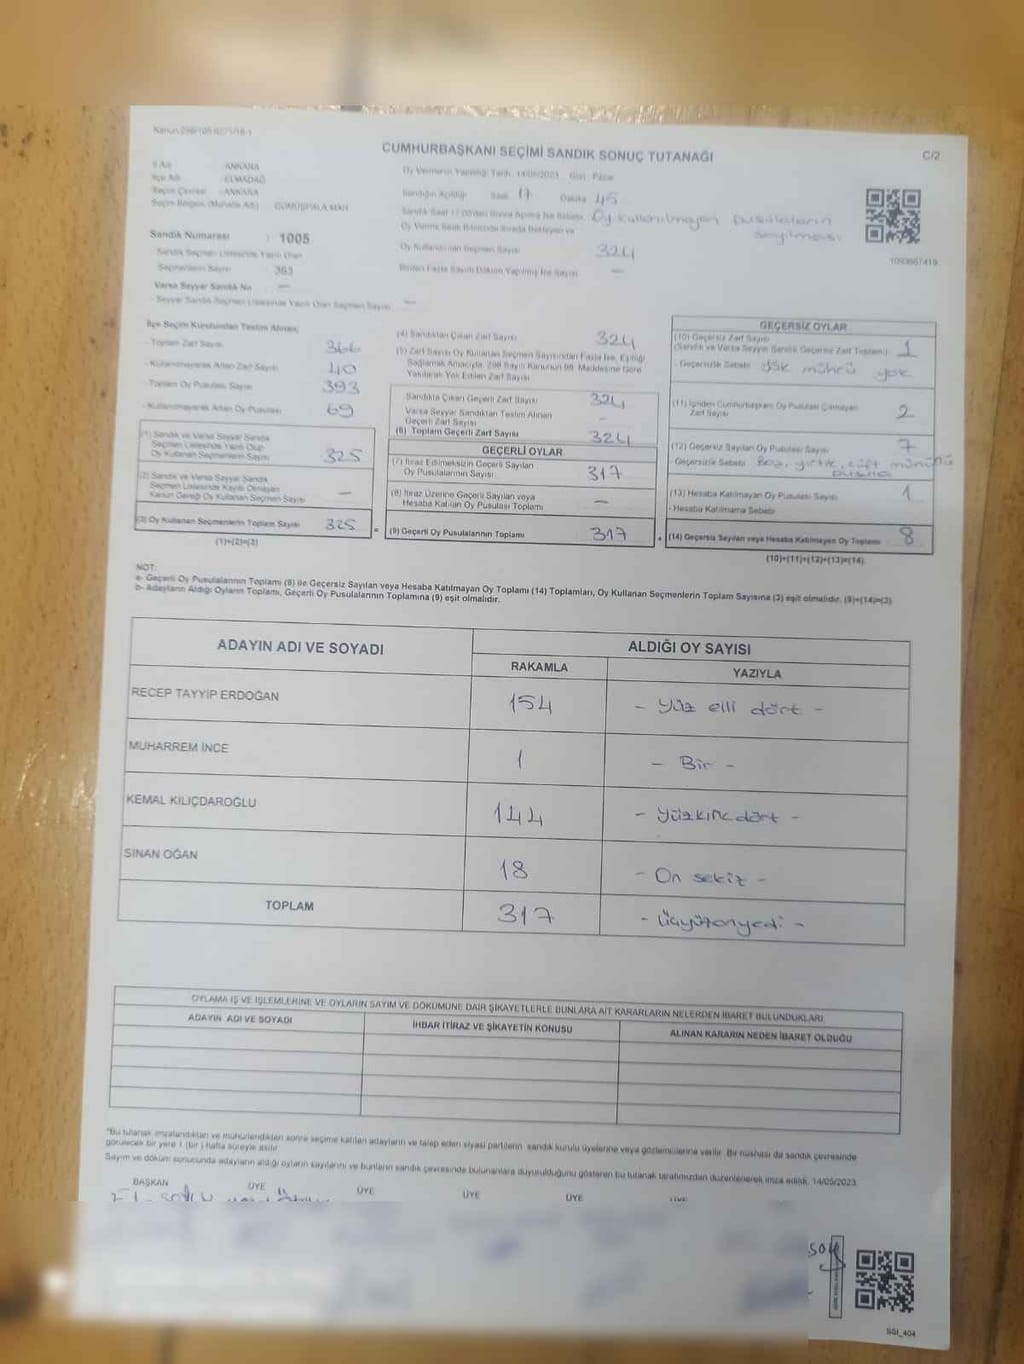 Kanun:298/105
CUMHURBAŞKANI SEÇİMİ SANDIK SONUÇ TUTANAĞI
C/2
İl Adı : ANKARA
İlçe Adı : ELMADAĞ
Seçim Çevresi : ANKARA
Seçim Bölgesi (Mahalle Adı) : GÜMÜŞPALA MAH.
Sandık Numarası : 1005
Sandık Seçmen Listesinde Yazılı Olan
Seçmenlerin Sayısı : 363
Varsa Seyyar Sandık No —
- Seyyar Sandık Seçmen Listesinde Yazılı Olan Seçmen Sayısı —
Oy Vermenin Yapıldığı Tarih : 14/05/2023 Gün : Pazar
Sandığın Açıldığı Saat 17 Dakika 45
Sandık Saat 17.00'den Sonra Açılmış İse Sebebi: Oy kullanılmayan pusulaların sayılması
Oy Verme Saati Bitiminde Sırada Bekleyen ve
Oy Kullandırılan Seçmen Sayısı 324
Birden Fazla Sayım Döküm Yapılmış İse Sayısı —
1093667419
İlçe Seçim Kurulundan Teslim Alınan;
- Toplam Zarf Sayısı 366
- Kullanılmayarak Artan Zarf Sayısı 40
- Toplam Oy Pusulası Sayısı 393
- Kullanılmayarak Artan Oy Pusulası 69
(1) Sandık ve Varsa Seyyar Sandık
Seçmen Listesinde Yazılı Olup
Oy Kullanan Seçmenlerin Sayısı 325
(2) Sandık ve Varsa Seyyar Sandık
Seçmen Listesinde Kayıtlı Olmayan
Kanun Gereği Oy Kullanan Seçmen Sayısı —
(3) Oy Kullanan Seçmenlerin Toplam Sayısı 325
(1)+(2)=(3)
(4) Sandıktan Çıkan Zarf Sayısı 324
(5) Zarf Sayısı Oy Kullanan Seçmen Sayısından Fazla İse, Eşitliği
Sağlamak Amacıyla, 298 Sayılı Kanunun 98. Maddesine Göre
Yakılarak Yok Edilen Zarf Sayısı
Sandıkta Çıkan Geçerli Zarf Sayısı 324
Varsa Seyyar Sandıktan Teslim Alınan
Geçerli Zarf Sayısı -
(6) Toplam Geçerli Zarf Sayısı 324
GEÇERLİ OYLAR
(7) İtiraz Edilmeksizin Geçerli Sayılan
Oy Pusulalarının Sayısı 317
(8) İtiraz Üzerine Geçerli Sayılan veya
Hesaba Katılan Oy Pusulası Toplamı —
(9) Geçerli Oy Pusulalarının Toplamı 317
GEÇERSİZ OYLAR
(10) Geçersiz Zarf Sayısı
(Sandık ve Varsa Seyyar Sandık Geçersiz Zarf Toplamı) 1
- Geçersizlik Sebebi mührü yok
(11) İçinden Cumhurbaşkanı Oy Pusulası Çıkmayan
Zarf Sayısı 2
(12) Geçersiz Sayılan Oy Pusulası Sayısı 7
- Geçersizlik Sebebi Boş, yırtık, çift mühürlü pusula
(13) Hesaba Katılmayan Oy Pusulası Sayısı 1
- Hesaba Katılmama Sebebi
(14) Geçersiz Sayılan veya Hesaba Katılmayan Oy Toplamı 8
(10)+(11)+(12)+(13)=(14)
NOT:
a- Geçerli Oy Pusulalarının Toplamı (9) ile Geçersiz Sayılan veya Hesaba Katılmayan Oy Toplamı (14) Toplamları, Oy Kullanan Seçmenlerin Toplam Sayısına (3) eşit olmalıdır. (9)+(14)=(3)
b- Adayların Aldığı Oyların Toplamı, Geçerli Oy Pusulalarının Toplamına (9) eşit olmalıdır.
ADAYIN ADI VE SOYADI
ALDIĞI OY SAYISI
RAKAMLA YAZIYLA
RECEP TAYYİP ERDOĞAN 154 - Yüz elli dört -
MUHARREM İNCE 1 - Bir -
KEMAL KILIÇDAROĞLU 144 - Yüzkırkdört -
SİNAN OĞAN 18 - On sekiz -
TOPLAM 317 - Üçyüzonyedi -
OYLAMA İŞ VE İŞLEMLERİNE VE OYLARIN SAYIM VE DÖKÜMÜNE DAİR ŞİKAYETLERLE BUNLARA AİT KARARLARIN NELERDEN İBARET BULUNDUKLARI
ADAYIN ADI VE SOYADI İHBAR İTİRAZ VE ŞİKAYETİN KONUSU ALINAN KARARIN NEDEN İBARET OLDUĞU
*Bu tutanak imzalandıktan ve mühürlendikten sonra seçime katılan adayların ve talep eden siyasi partilerin sandık kurulu üyelerine veya gözlemcilerine verilir. Bir nüshası da sandık çevresinde
görülecek bir yere 1 (bir) hafta süreyle asılır.
Sayım ve döküm sonucunda adayların aldığı oyların sayılarını ve bunların sandık çevresinde bulunanlara duyurulduğunu gösteren bu tutanak tarafımızdan düzenlenerek imza edildi. 14/05/2023
BAŞKAN ÜYE ÜYE ÜYE ÜYE
SGI_404